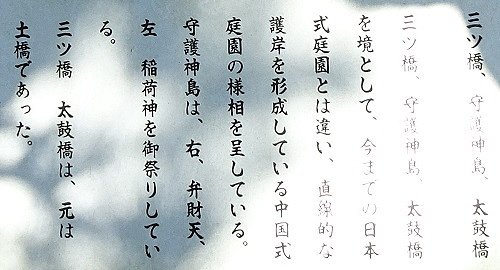 三ツ橋、守護神島、太鼓橋
三ツ橋、守護神島、太鼓橋
を境として、今までの日本
式庭園とは違い、直線的な
護岸を形成している中国式
庭園の様相を呈している。
守護神島は、右、弁財天、
左　稲荷神を御祭りしてい
る。
三ツ橋　太鼓橋は、元は
土橋であった。